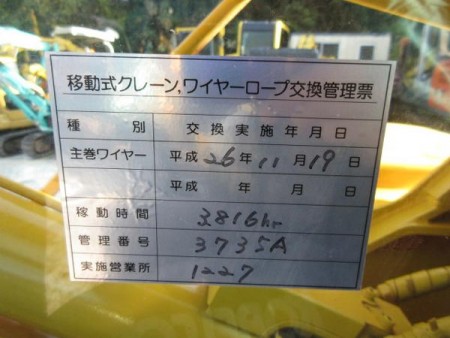 移動式クレーン,ワイヤーロープ交換管理票
種別 交換実施年月日
主巻ワイヤー 平成26年11月19日
平成 年 月 日
稼動時間 3816hr
管理番号 3735A
実施営業所 1227